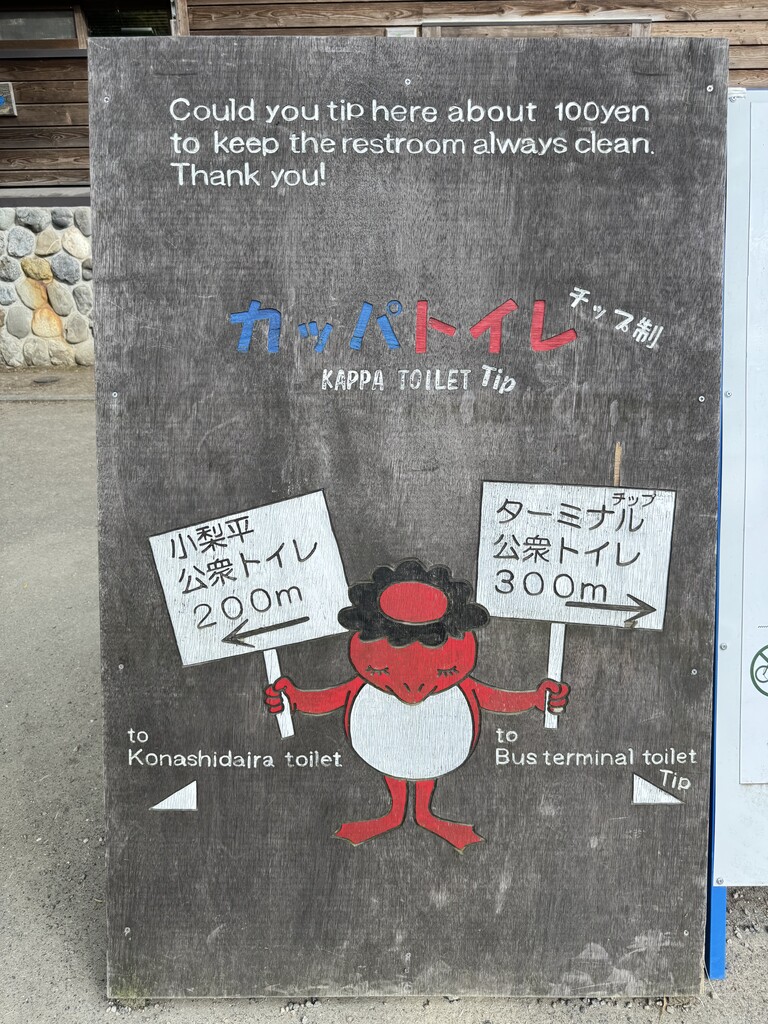 Could you tip here about 100yen
to keep the restroom always clean.
Thank you!
カッパトイレ チップ制
KAPPA TOILET Tip
小梨平
公衆トイレ
200m
チップ
ターミナル
公衆トイレ
300m
to
Konashidaira toilet
to
Bus terminal toilet
Tip